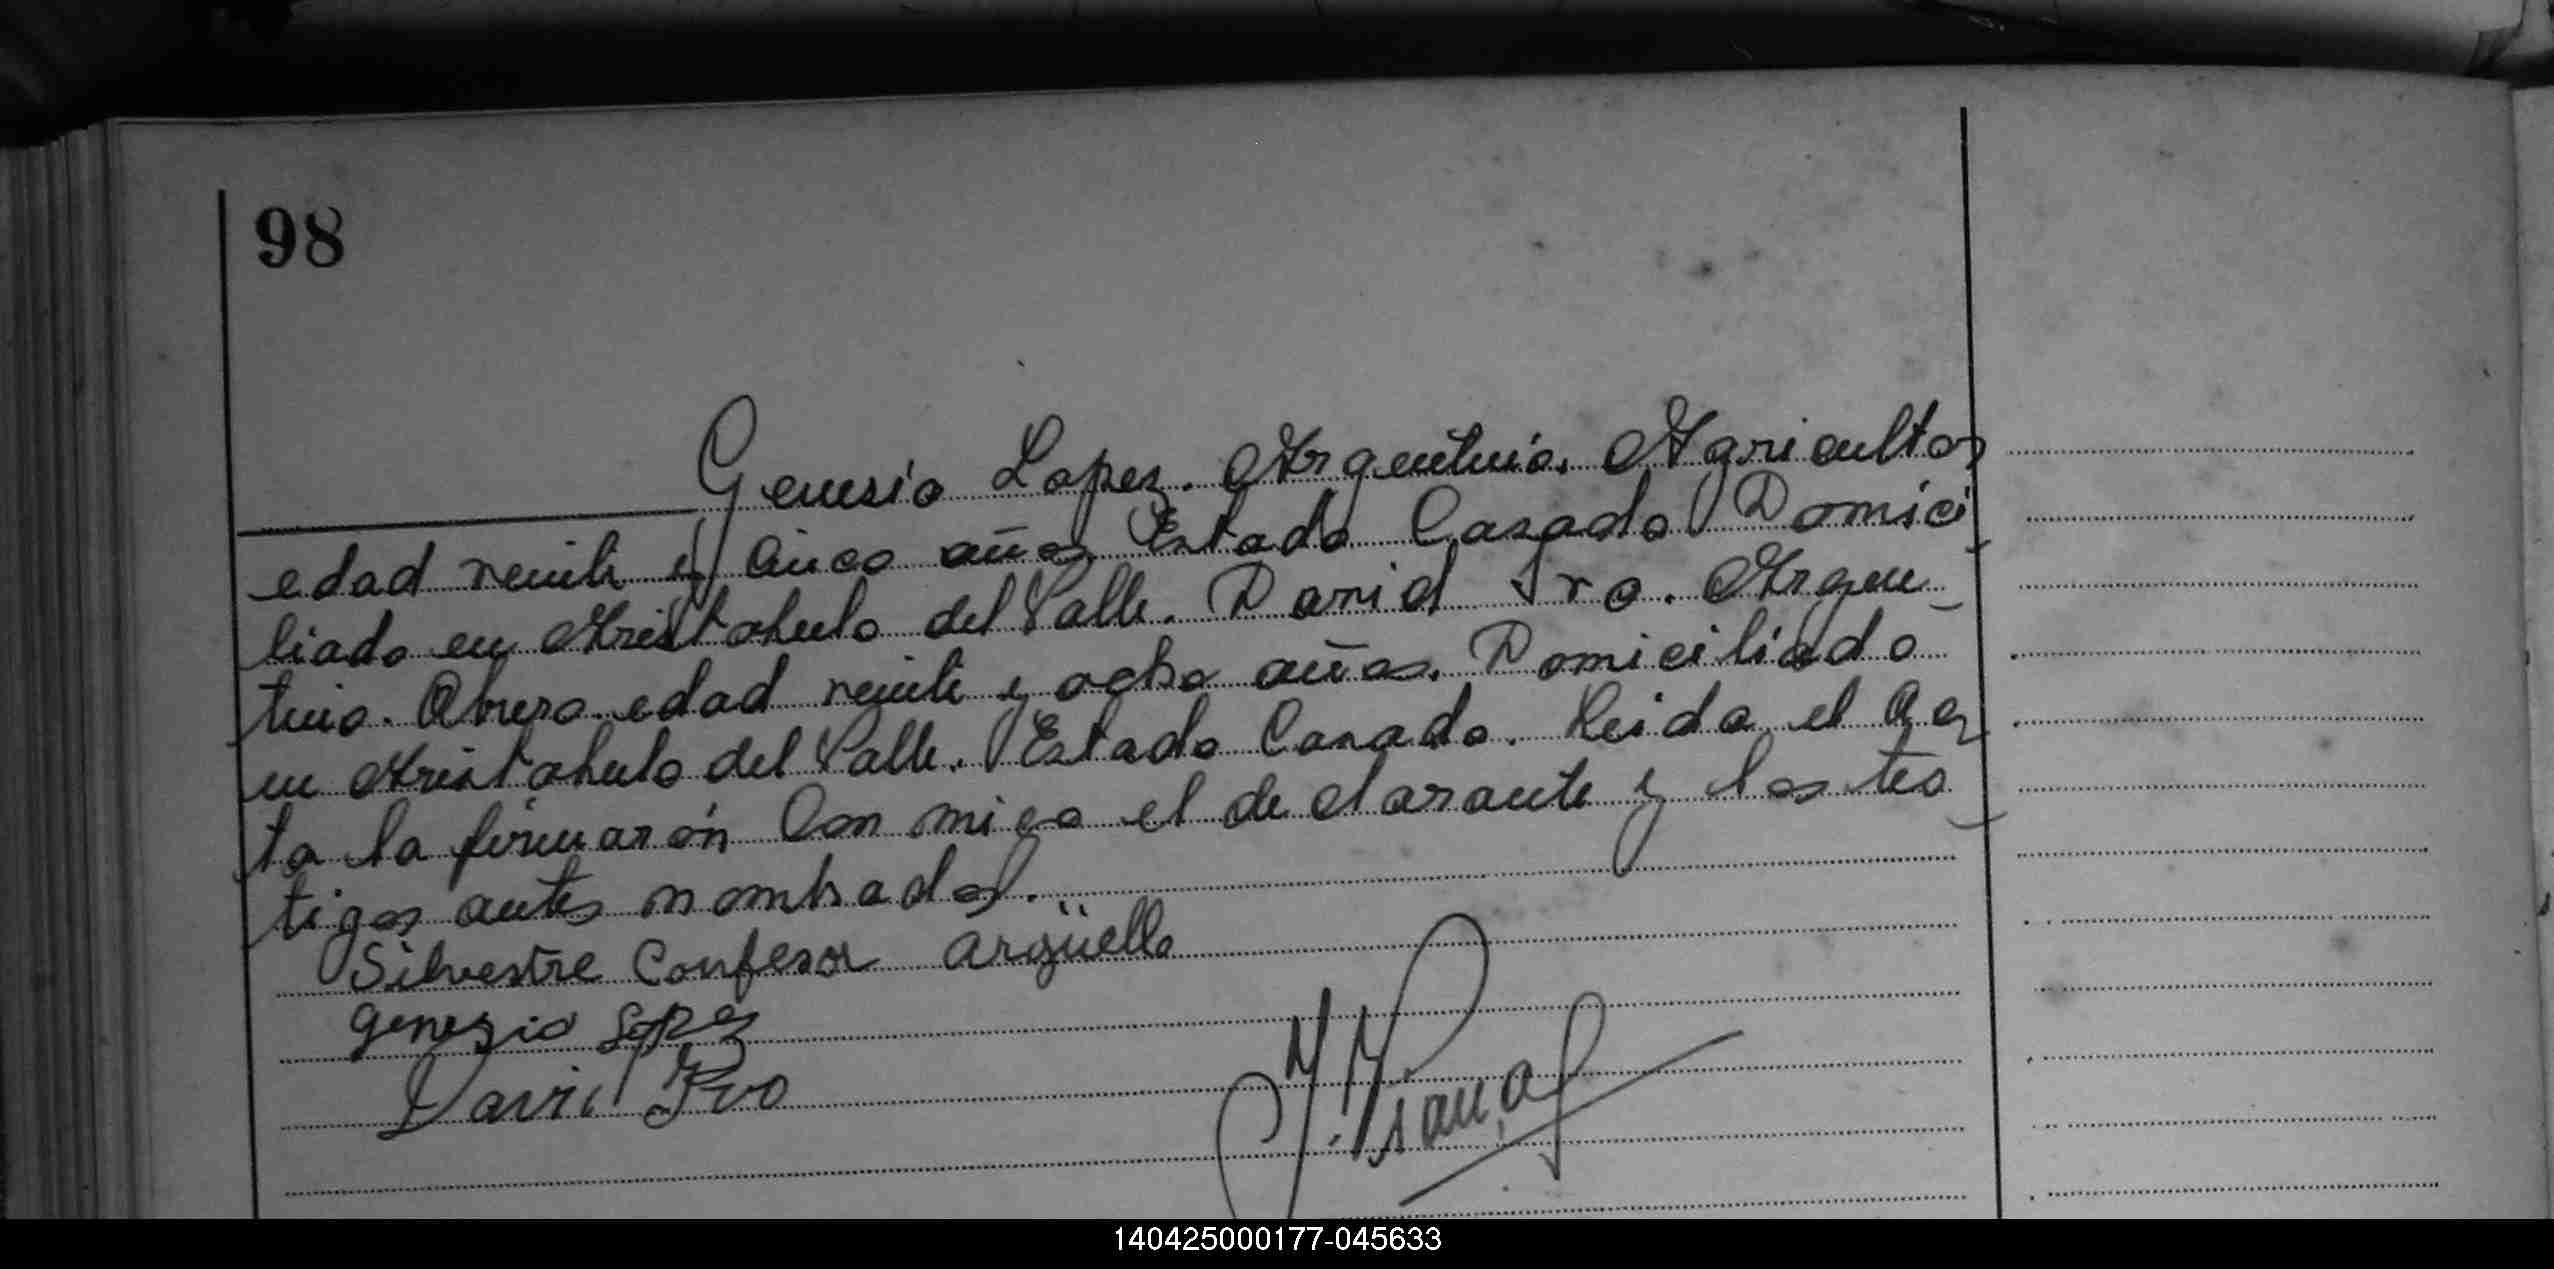 98
Genesio Lopez. Argentino. Agricultor
edad veinte y Cinco años Estado Casado Domici
liado en Aristobulo del Valle. David Ivo. Argen-
tino. Obrero. edad veinte y ocho años. Domiciliado
en Aristobulo del Valle. Estado Casado. Leida el Ac
ta la firmarón Con migo el de clarante y los tes-
tigos antes nombrados.
Silvestre Confesor argüello
genezio Lopez
David Ivo
140425000177-045633